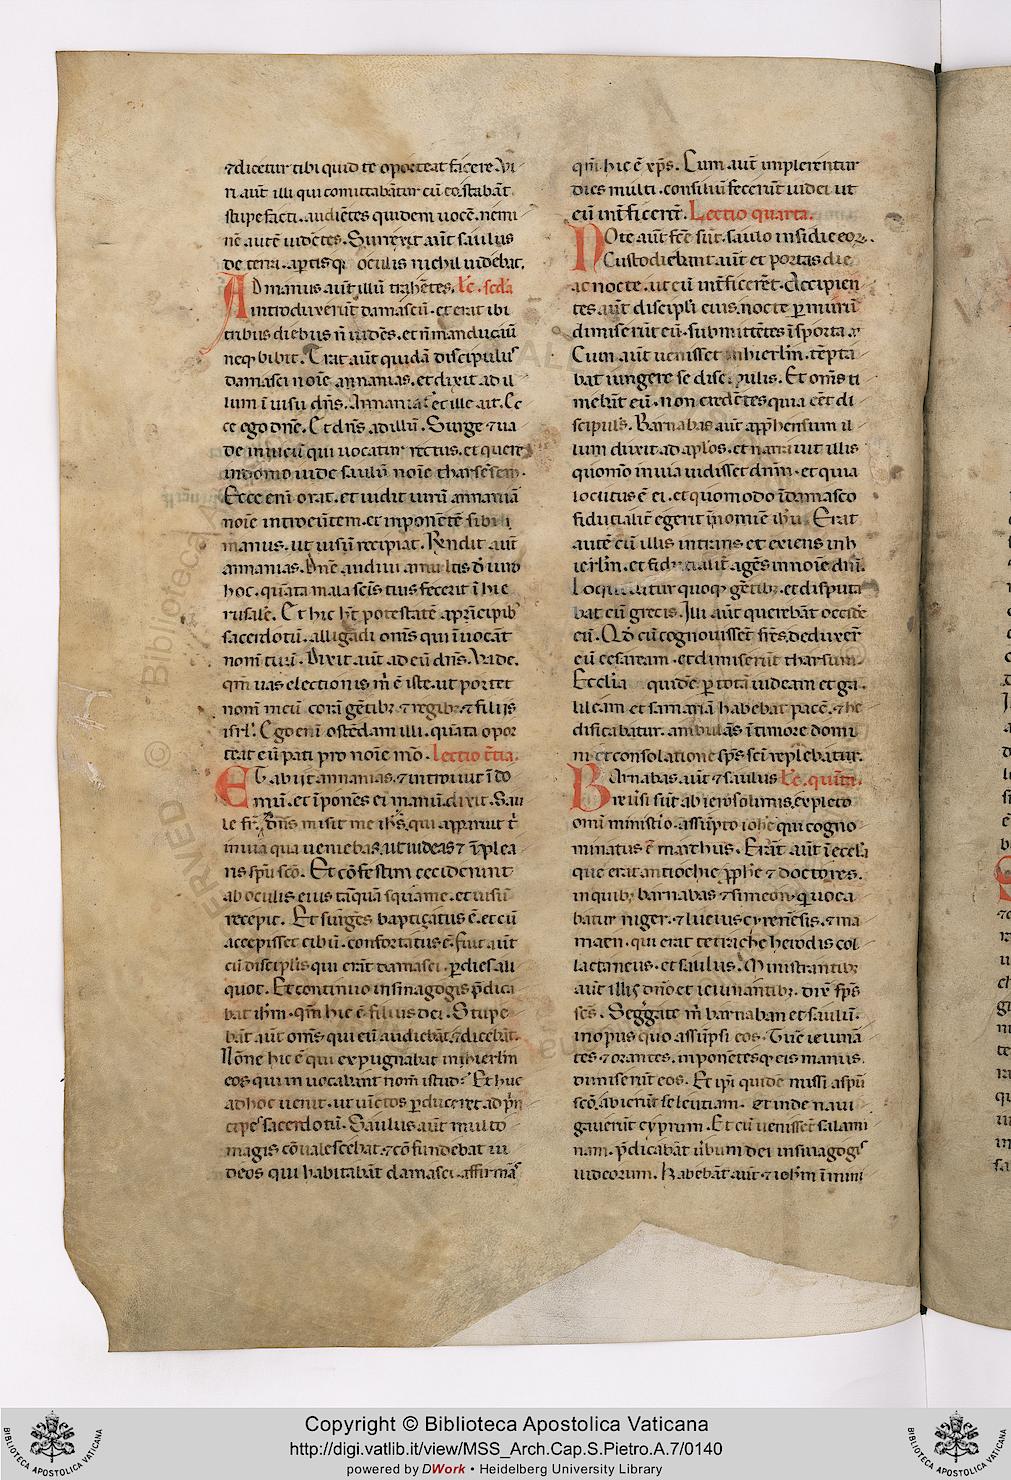 ⁊dicetur tibi quid te oporteat facere. Vi
ri aut̄ illi qui comittabātur cū eo. stabāt
stupefacti. audiētes quidem uocē. nemi
nē autē uidētes. Surrexit aut̄ saulus
de terra. aꝑtisq; oculis nichil uidebat.
AD manus aut̄ illū trahētes. Lc̄. scd̄a
introduxerūt damascū. et erat ibi
tribus diebus n̄ uidēs. et n̄ manducauit
neq; bibit. Erat aut̄ quidā discipulus
damasci noīe annanias. et dixit ad il
lum ī uisu dn̄s. Annania. et ille ait. Ec
ce ego dn̄e. Et dn̄s ad illū. Surge ⁊ ua
de in uicū qui uocatur rectus. et quere
in domo iude saulū noīe tharsēsem.
Ecce enī orat. et uidit uirū annaniā
noīe introeūtem. et inponētē sibi
manus. ut uisū recipiat. Rn̄dit aut̄
annanias. Dn̄e audiui a multis d̄ uiro
hoc. quāta mala scīs tuis fecerit ī hie
rusalē. Et hic h̄t potestatē a pͥncipib;
sacerdotū. alligādi om̄s qui īuocāt
nom̄ tuū. Dixit aut̄ ad eū dn̄s. Vade.
qm̄ uas electionis m̄ ē iste. ut portet
nom̄ meū corā gētib; ⁊ regib; ⁊ filiis
isrl̄. Ego enī ostēdam illi. quāta opor
teat eū pati pro noīe mō. Lectio t̄tia.
ET abiit annanias. ⁊ introiuit ī do
mū. et īponēs ei manū. dixit. Sau
le fr̄. Dn̄s misit me ihs̄. qui apparuit t̄
in uia qua ueniebas. ut uideas ⁊ īplea
ris spū scō. Et cōfestim ceciderunt
ab oculis eius tāquā squame. et uisū
recepit. Et surgēs baptiçatus ē. et cū
accepisset cibū. confortatus ē. Fuit aut̄
cū discipulis qui erāt damasci. ꝑ dies ali
quot. Et continuo in sinagogis p̄dica
bat ihm̄. qm̄ hic ē filius dei. Stupe
bāt aut̄ om̄s qui eū audiebāt. ⁊ dicebāt.
Nōne hic ē qui expugnabat in hierl̄m
eos qui inuocabant nom̄ istud? Et huc
ad hoc uenit. ut uīctos ꝑduceret ad pͥn
cipes sacerdotū. Saulus aut̄ multo
magis cōualescebat. ⁊ cōfundebat iu
deos qui habitabāt damasci. affirmās
qm̄ hic ē xp̄s. Cum aut̄ implerentur
dies multi. consiliū fecerūt iudei ut
eū int̄ficerēt. Lectio quarta.
NOte aut̄ fcē sūt saulo insidie eoꝝ.
Custodiebant aut̄ et portas die
ac nocte. ut eū int̄ficerēt. Accipien
tes aut̄ discipl̄i eius. nocte ꝑ murū
dimiserūt eū. submittētes ī sporta.
Cum aut̄ uenisset in hierl̄m. tēpta
bat iungere se discipulis. Et om̄s ti
mebāt eū. non credētes quia eēt di
scipul̄s. Barnabas aut̄ app̄hensum il
lum duxit ad apl̄os. et narrauit illis
quomō in uia uidisset dn̄m. et quia
locutus ē ei. et quomodo ī damasco
fiducialit̄ egerit in nomīe ihu. Erat
autē cū illis intrans et exiens in h
ierl̄m. et fiducialit̄ agēs in noīe dn̄i.
Loquebatur quoq; gētib; et disputa
bat cū grecis. Illi aut̄ querebāt occidēe
eū. Qd̄ cū cognouissēt frs̄. deduxer̄
eū cesaream. et dimiserūt tharsum.
Eccl̄ia quidē ꝑ totā iudeam et ga
lileam et samariā habebat pacē. ⁊ he
dificabatur. ambulās ī timore domi
ni. et consolatione sps̄ scī replēbatur.
BArnabas aut̄ ⁊ saulus Lc̄. quīta.
reūsi sūt ab ierosolimis. expleto
omī ministͥo. assūpto iohē qui cogno
minatus ē marchus. Erāt aut̄ ī eccl̄a
que erat antiochie ꝓphē ⁊ doctores.
in quib; barnabas ⁊ simeon. qͥ uoca
batur niger. ⁊ lucius cyrenēsis. ⁊ ma
naen. qui erat tetrache herodis col
lactaneus. et saulus. Ministrantib;
aut̄ illis dn̄o et ieiunantib;. dix̄ sps̄
scs̄. Segͤgate m̄ barnaban et saulū.
in opus quo assūpsi eos. Tūc ieiunā
tes ⁊ orantes. inponētesq; eis manus.
dimiserūt eos. Et ip̄i quidē missi a spū
scō. abierūt seleutiam. et inde naui
gauerūt cyprum. Et cū uenissēt salami
nam. p̄dicabāt ūbum dei in sinagogis
iudeorum. Habebāt aut̄ ⁊ iohm̄ ī mini
Copyright © Biblioteca Apostolica Vaticana
http://digi.vatlib.it/view/MSS_Arch.Cap.S.Pietro.A.7/0140
powered by DWork • Heidelberg University Library
BIBLIOTECA APOSTOLICA VATICANA
BIBLIOTECA APOSTOLICA VATICANA